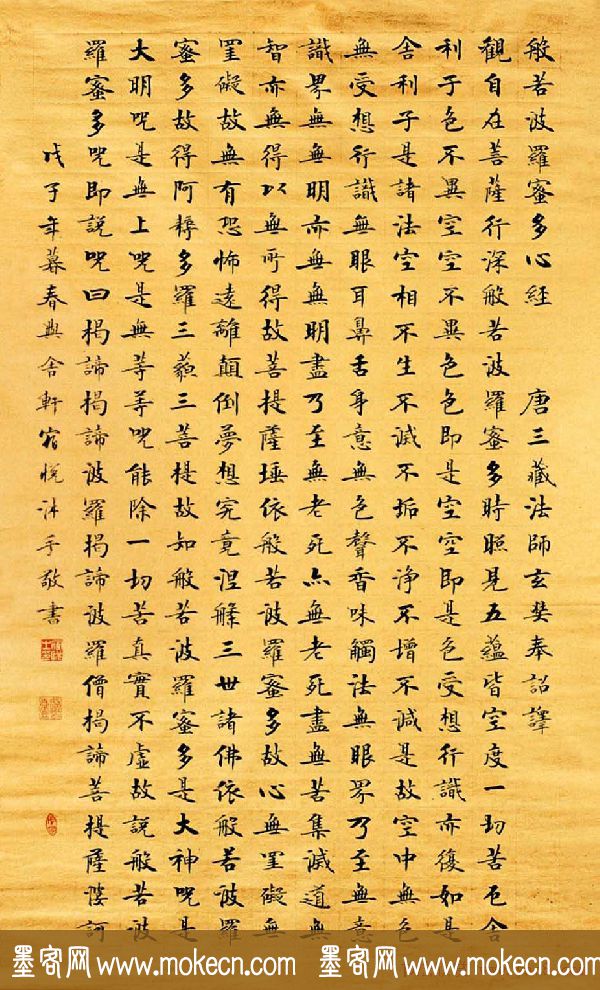 般若波羅蜜多心経 唐三藏法師玄奘奉詔譯
觀自在菩薩行深般若波羅蜜多時照見五蘊皆空度一切苦厄舍
利子色不異空空不異色色即是空空即是色受想行識亦復如是
舍利子是諸法空相不生不滅不垢不淨不增不減是故空中無色
無受想行識無眼耳鼻舌身意無色聲香味觸法無眼界乃至無意
識界無無明亦無無明盡乃至無老死亦無老死盡無苦集滅道無
智亦無得以無所得故菩提薩埵依般若波羅蜜多故心無罣礙無
罣礙故無有恐怖遠離顛倒夢想究竟涅槃三世諸佛依般若波羅
蜜多故得阿耨多羅三藐三菩提故知般若波羅蜜多是大神咒是
大明咒是無上咒是無等等咒能除一切苦真實不虛故說般若波
羅蜜多咒即說咒曰揭諦揭諦波羅揭諦波羅僧揭諦菩提薩婆訶
戊子年暮春舍軒悅沐手敬書
墨客网 www.mokecn.com 墨客网 www.mokecn.com